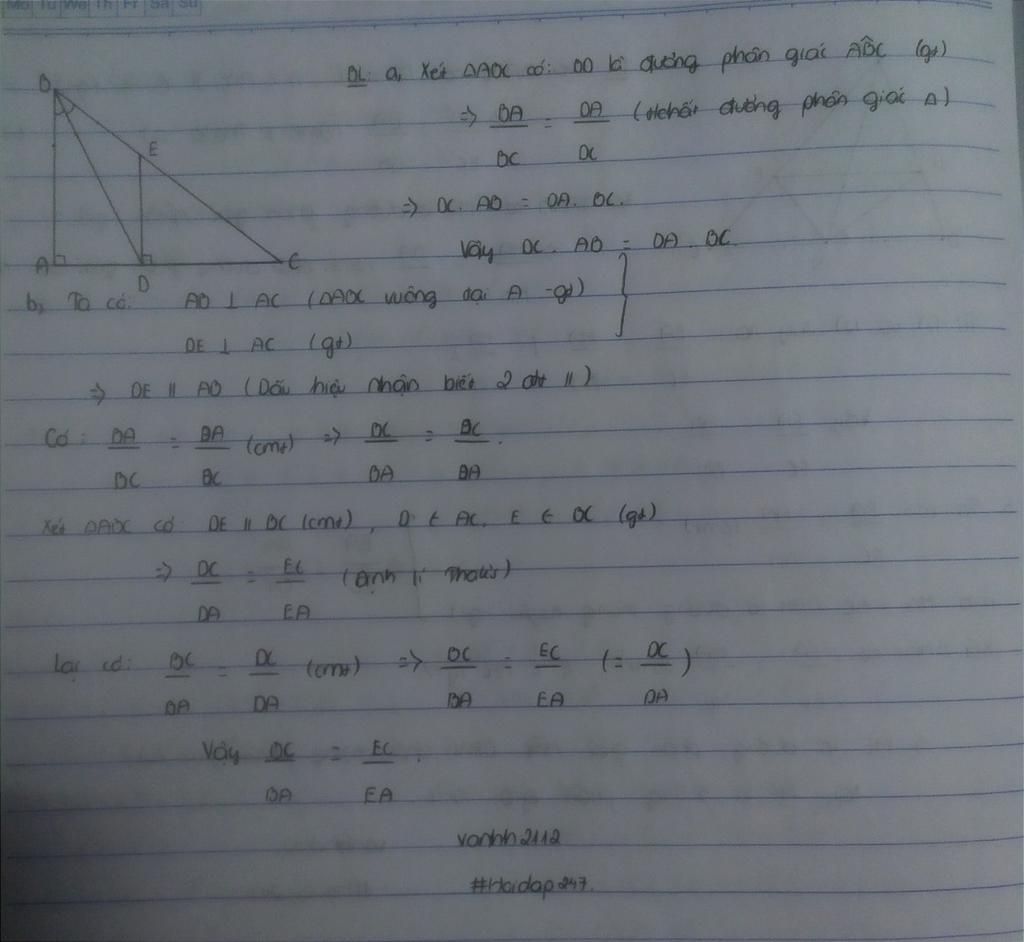 Mo Tu We Th Fr Sa Su
B
E
A
D
C
BL: a, Xét ΔABC có: BD là đường phân giác ABC (gt)
⇒ BA/BC = DA/DC (t/chất đường phân giác Δ)
⇒ DC. AB = DA. BC.
Vậy DC. AB = DA. BC.
b, Ta có: AB ⊥ AC (ΔABC vuông tại A -gt)
DE ⊥ AC (gt)
⇒ DE // AB (Dấu hiệu nhận biết 2 đt //)
Có: DA/DC = BA/BC (cmt) ⇒ DC/DA = BC/BA.
Xét ΔABC có DE // BC (cmt), D ∈ AC, E ∈ BC (gt)
⇒ DC/DA = EC/EA (Định lí Thalès)
Lại có: BC/BA = DC/DA (cmt) ⇒ BC/BA = EC/EA (= DC/DA)
Vậy BC/BA = EC/EA.
vanhh2112
#Hoidap247.